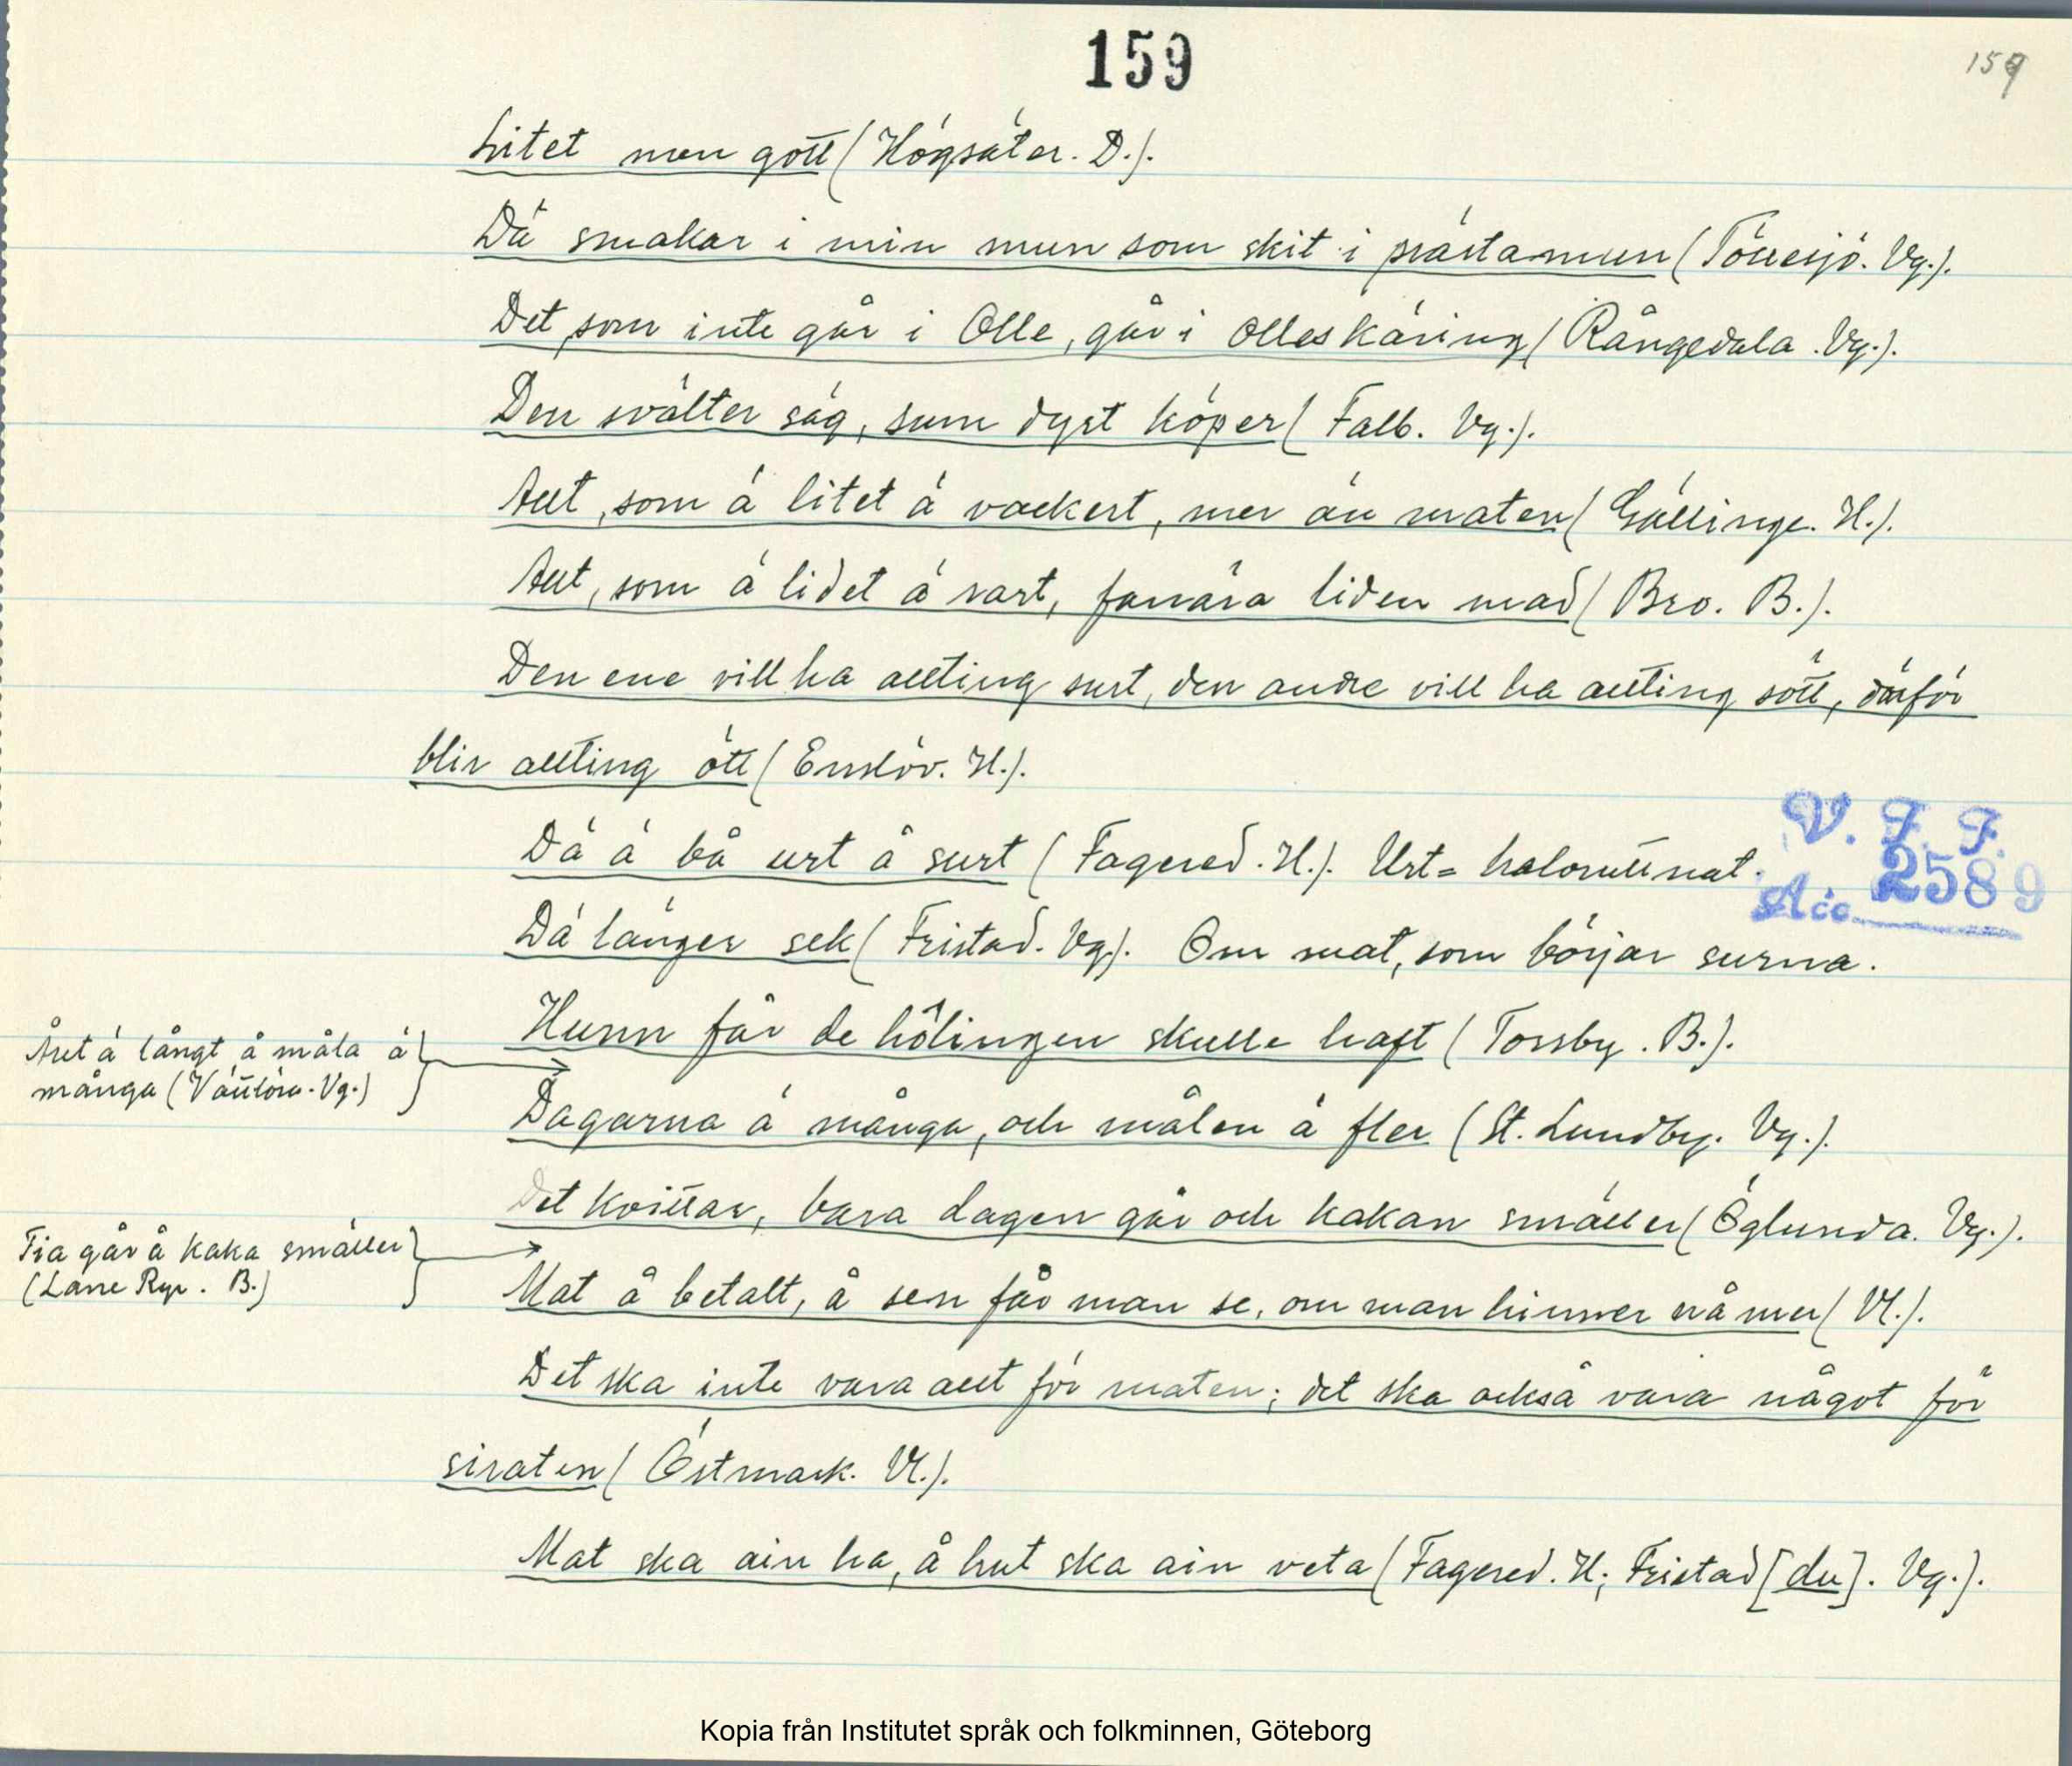 159
159
Litet men gott (Högsäter. D.).
Dä smakar i min mun som skit i prästamun (Töllesjö. Vg.).
Det, som inte går i Olle, går i Olles käring (Rångedala. Vg.).
Den svälter säg, sum dyrt köper (Falb. Vg.).
Allt, som ä litet ä vackert, mer än maten (Gällinge. H.).
Allt, som ä lidet ä rart, forrära liden mad (Bro. B.).
Den ene vill ha allting surt, den andre vill ha allting sött, därför
blir allting ött (Enslöv. H.).
Dä ä bå urt å surt (Fagered. H.). Urt = halvruttnat.
V. F. F.
Acc. 2589
Dä länger sek (Fristad. Vg.). Om mat, som börjar surna.
Hunn får de hölingen skulle haft (Torsby. B.).
Året ä långt å måla ä
många (Vättlösa. Vg.)
Dagarna ä många, och målen ä fler (St. Lundby. Vg.).
Det kvittar, bara dagen går och kakan smäller (Öglunda. Vg.).
Tia går å kaka smäller
(Lane Ryr. B.)
Mat å betalt, å sen får man se, om man hinner nå mer (Vl.).
Det ska inte vara allt för maten; det ska också vara något för
siraten (Östmark. Vl.).
Mat ska ain ha, å hut ska ain veta (Fagered. H; Fristad [du]. Vg.).
Kopia från Institutet språk och folkminnen, Göteborg